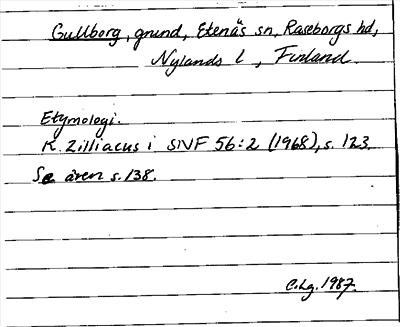 Gullborg, grund, Ekenäs sn, Raseborgs hd,
Nylands l, Finland.
Etymologi.
K. Zilliacus i SNF 56:2 (1968), s. 123.
Se även s. 138.
C.Lg. 1987.